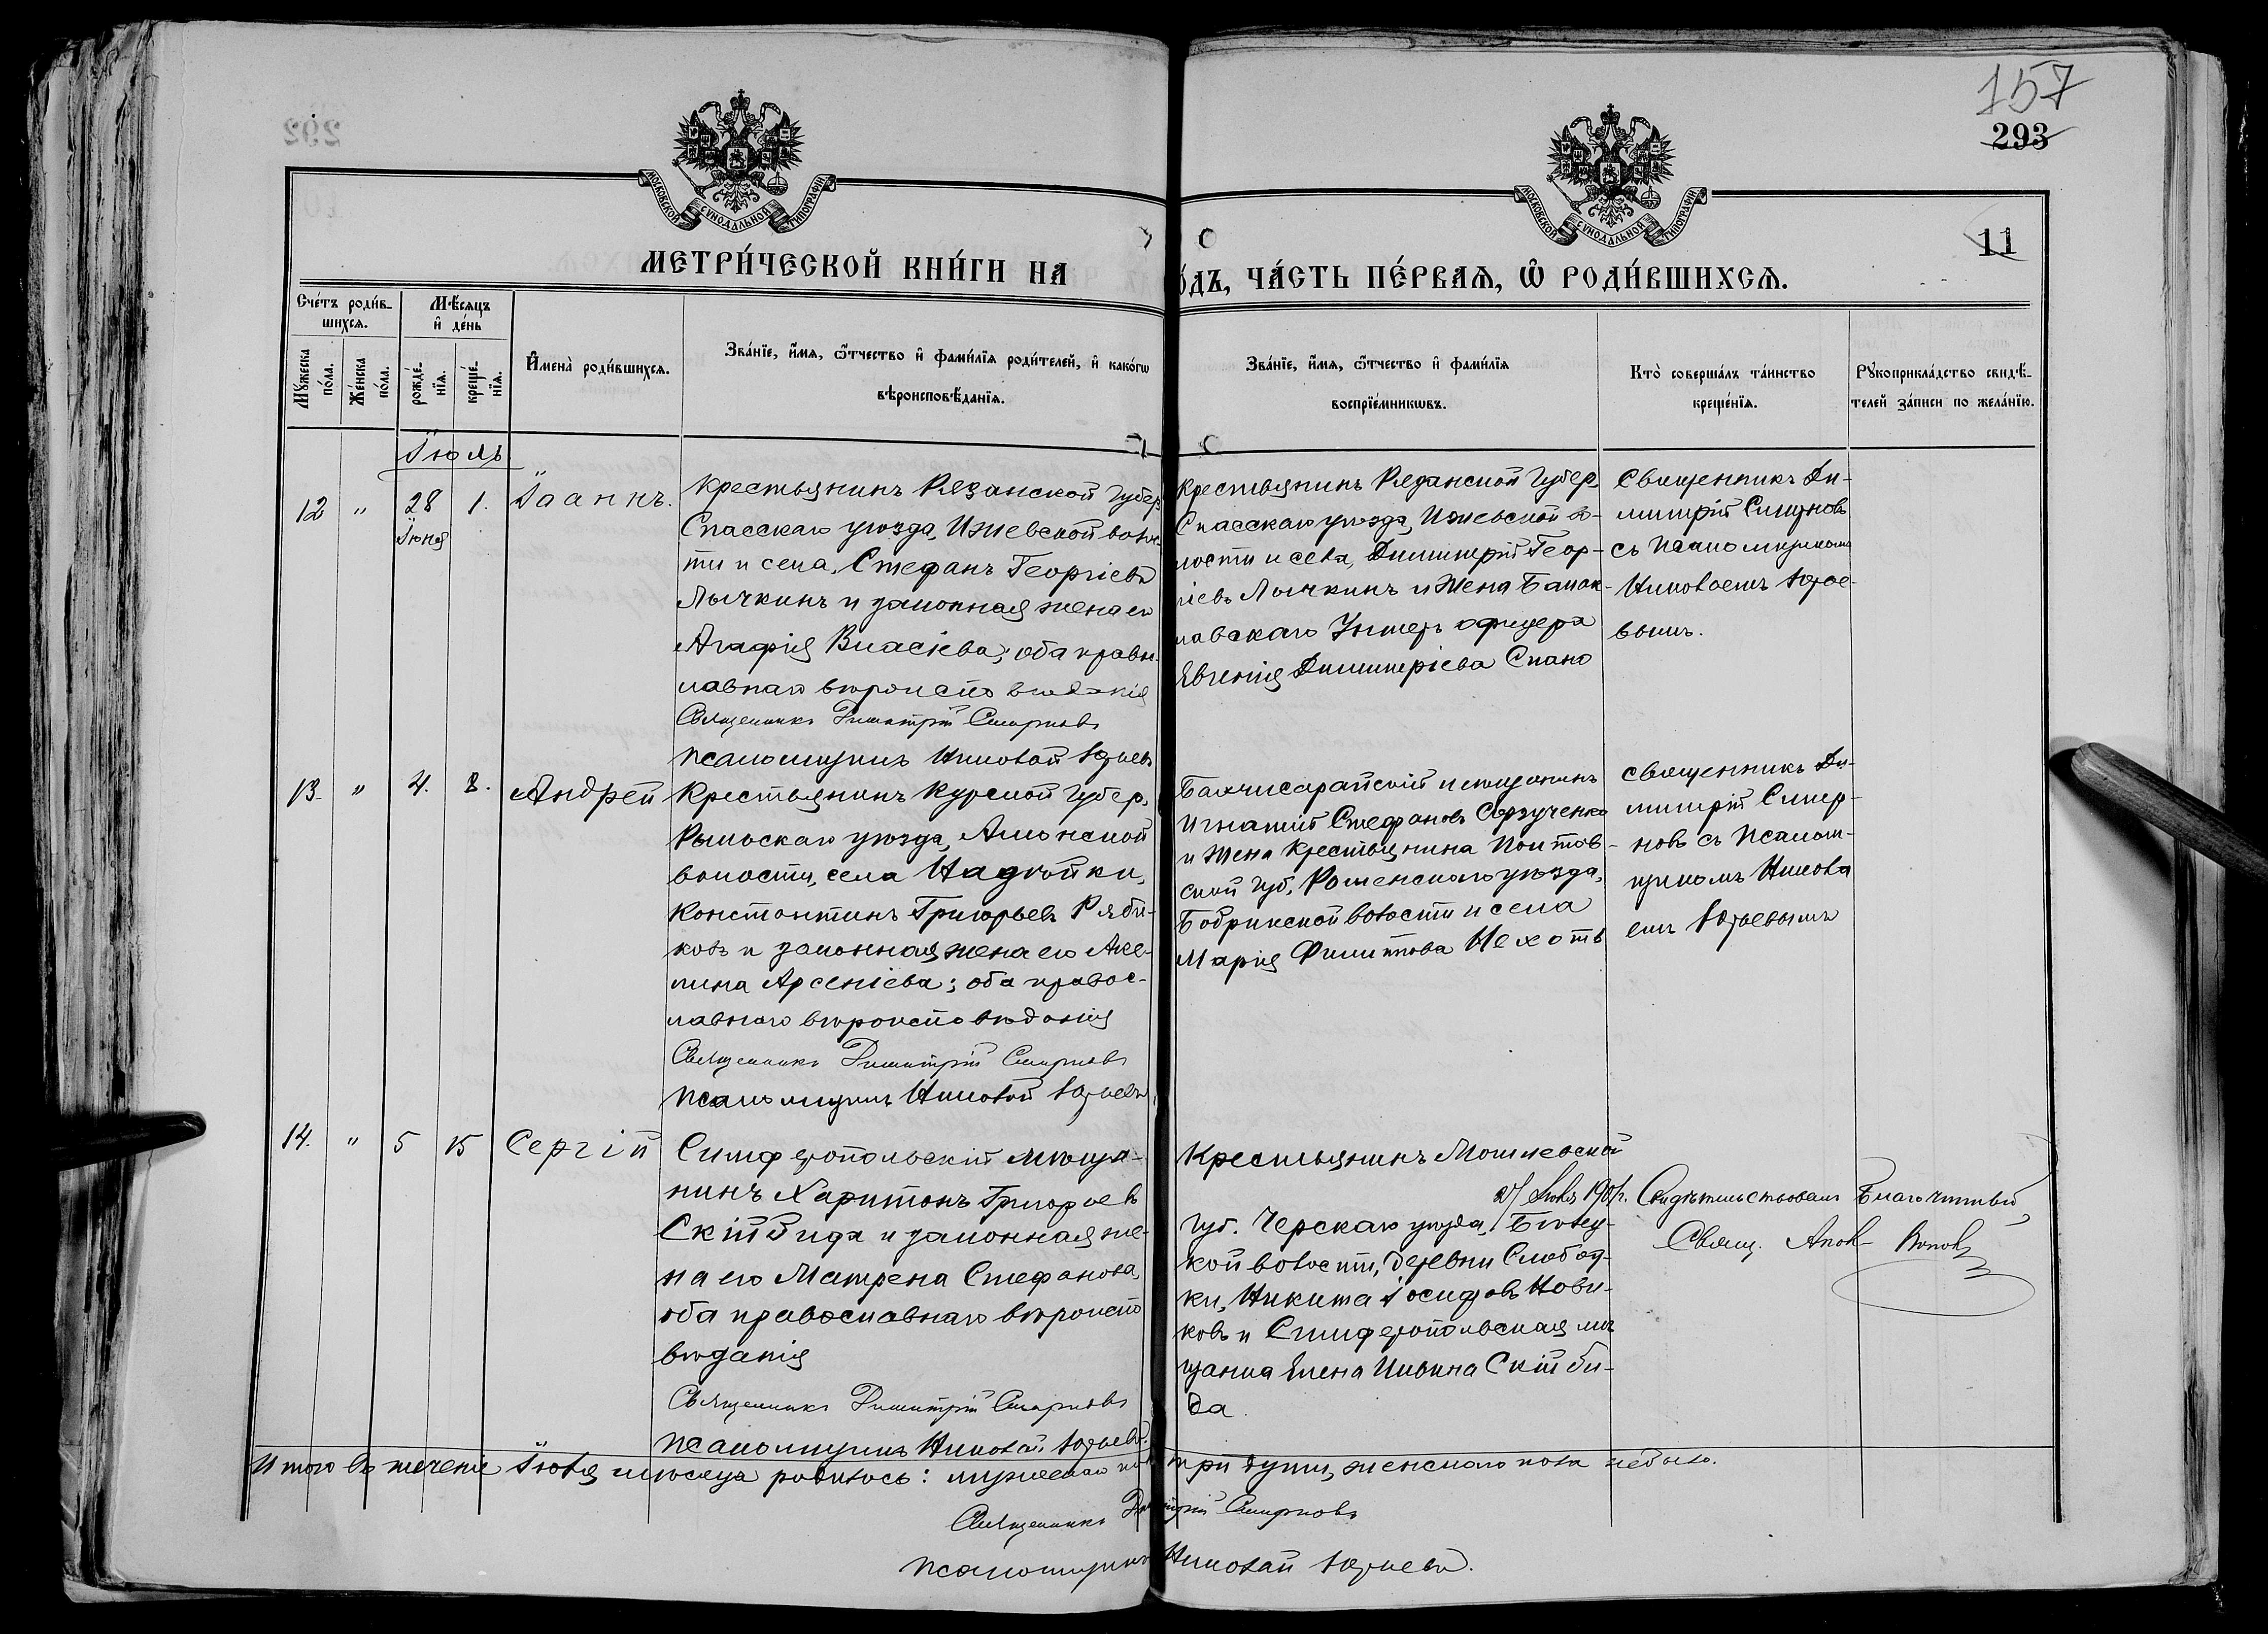 157
293
292
МОСКОВСКОЙ СѴНОДАЛЬНОЙ ТИПОГРАФІИ
МОСКОВСКОЙ СѴНОДАЛЬНОЙ ТИПОГРАФІИ
11
МЕТРИ́ЧЕСКОЙ КНИ́ГИ НА
О́ДЪ, ЧА́СТЬ ПЕ́РВАѦ, Ѡ҆ РОДИ́ВШИХСѦ.
Сче́тъ роди́в-
шихсѧ.
Мѣ́сѧцъ
и҆ де́нь
Мꙋ́жеска
по́ла.
Же́нска
по́ла.
рожде́-
нїѧ.
креще́-
нїѧ.
И҆мена̀ роди́вшихсѧ.
Зва́нїе, и҆́мѧ, ѻ҆́тчество и҆ фами́лїѧ роди́телей, и҆ како́гѡ
вѣроисповѣ́данїѧ.
Зва́нїе, и҆́мѧ, ѻ҆́тчество и҆ фами́лїѧ
воспрїе́мникѡвъ.
Кто̀ соверша́лъ та́инство
креще́нїѧ.
Рꙋкоприкла́дство свидѣ́-
телей за́писи по жела́нїю.
Іюль
12 " 28 1. Іоаннъ.
Іюня
Крестьянинъ Рязанской Губер.
Спасскаго уѣзда, Ижевской волос-
ти и села, Стефанъ Георгіевъ
Лычкинъ и законная жена его
Агафія Власіева; оба право-
лавнаго вѣроисповѣданія
Священникъ Димитрій Смирновъ
Псаломщикъ Николай Юрьевъ
Крестьянинъ Рязанской Губер.
Спасскаго уѣзда, Ижевской во-
лости и села, Димитрій Геор-
гіевъ Лычкинъ и Жена Балак-
лавскаго Унтеръ офицера
Евгенія Димитріева Спано
Священникъ Ди-
митрій Смирновъ
съ Псаломщикомъ
Николаемъ Юрье-
вымъ.
13. " 4. 8. Андрей
Крестьянинъ Курской Губер.
Рыльскаго уѣзда, Амонской
волости, села
Константинъ Григорьевъ Ряби-
ковъ и законная жена его Аке-
лина Арсеніева; оба правос-
лавнаго вѣроисповѣданія
Священникъ Димитрій Смирновъ
Псаломщикъ Николай Юрьевъ
Бахчисарайскій мещанинъ
Игнатій Стефановъ
и Жена Крестьянина Полтав-
ской Губ, Роменскаго уѣзда,
Бобрикской волости и села
Марія Филиппова Нехотъ
Священникъ Ди-
митрій Смир-
новъ съ Псалом-
щикомъ Никола
емъ Юрьевымъ
14. " 5 15 Сергій
Симферопольскій мѣща-
нинъ Харитонъ Григорьевъ
Скиби́да и законная же-
на его Матрена Стефанова,
оба православнаго вѣроиспо
вѣданія
Священникъ Димитрій Смирновъ
Псаломщикъ Николай Юрьевъ.
Крестьянинъ Могилевской
Губ. Черскаго уѣзда,
кой волости, деревни Слобод-
ки, Никита Іосифовъ Нови-
ковъ и Симферопольская мѣ
щанка Елена Ильина Скиби-
да
Іюля 190 г. Свидѣтельствовалъ Благочинный,
Свящ. Попов
Итого въ теченіе Іюля мѣсяца родилось: мужескаго пола три души, женскаго пола небыло.
Священникъ Димитрій Смирновъ
Псаломщикъ Николай Юрьевъ.